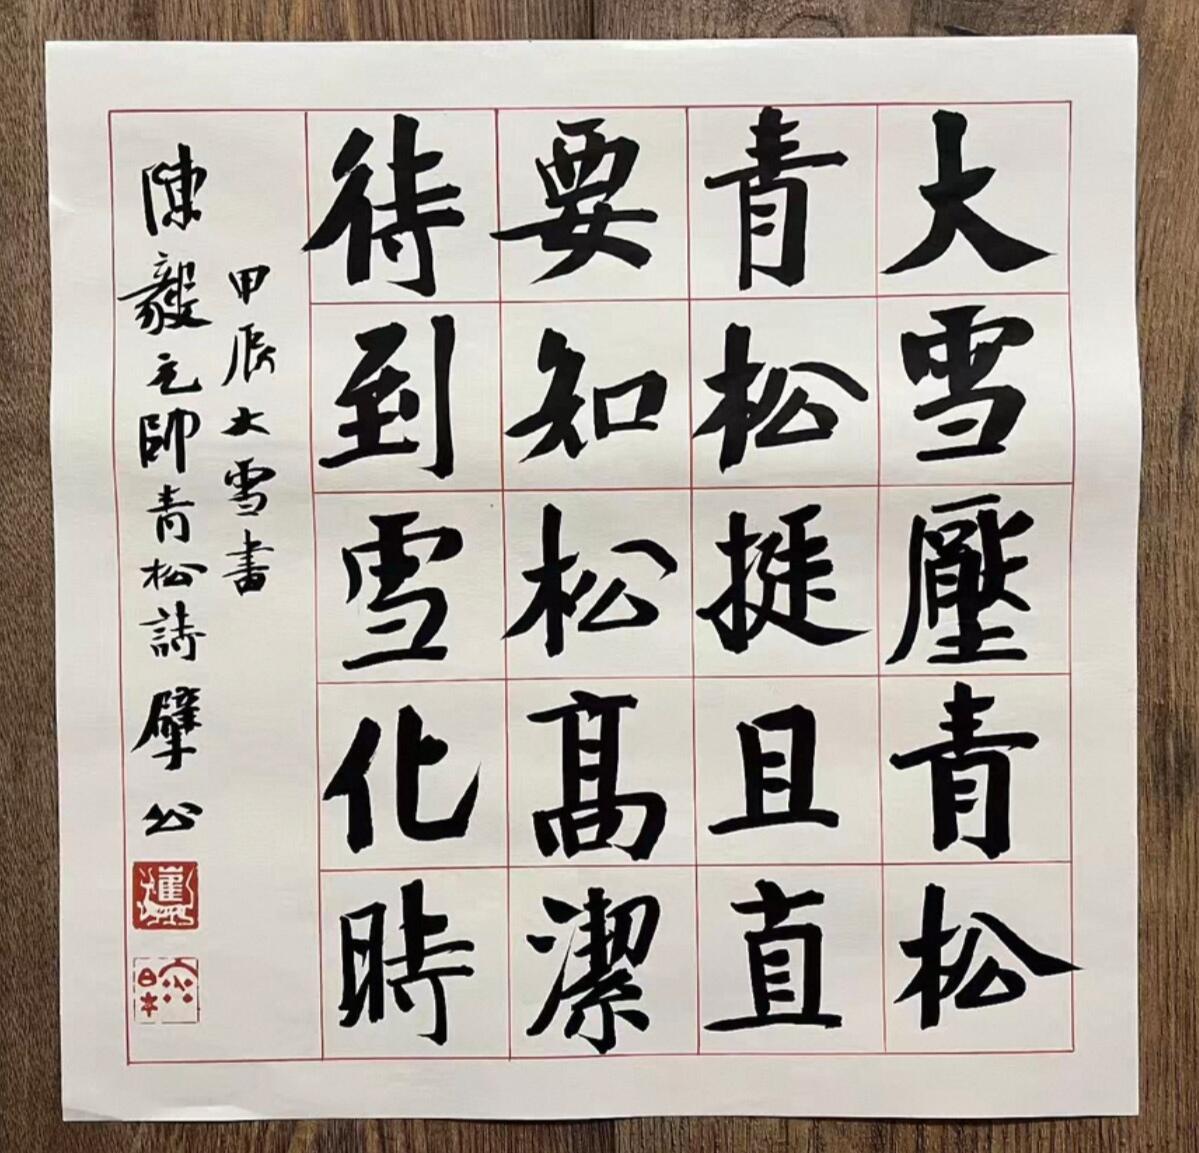 大雪壓青松
青松挺且直
要知松高潔
待到雪化時
甲辰大雪書
陳毅元帥青松詩 擘公